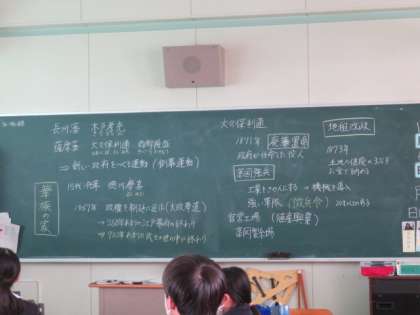 長州藩 木戸孝允
薩摩藩 大久保利通 西郷隆盛
⇒新しい政府をつくる運動(倒幕運動)
15代将軍 徳川慶喜
1867年 政権を朝廷に返上(大政奉還)
→260年あまりの江戸幕府が終わり
武士の世の中が終わり
大久保利通
1871年 廃藩置県
政府が任命した役人
富国強兵
工業をさかんにする→機械を導入
強い軍隊(徴兵令)
官営工場(殖産興業)
富岡製糸場
地租改正
1873年
土地の価格の3%を
お金で納める